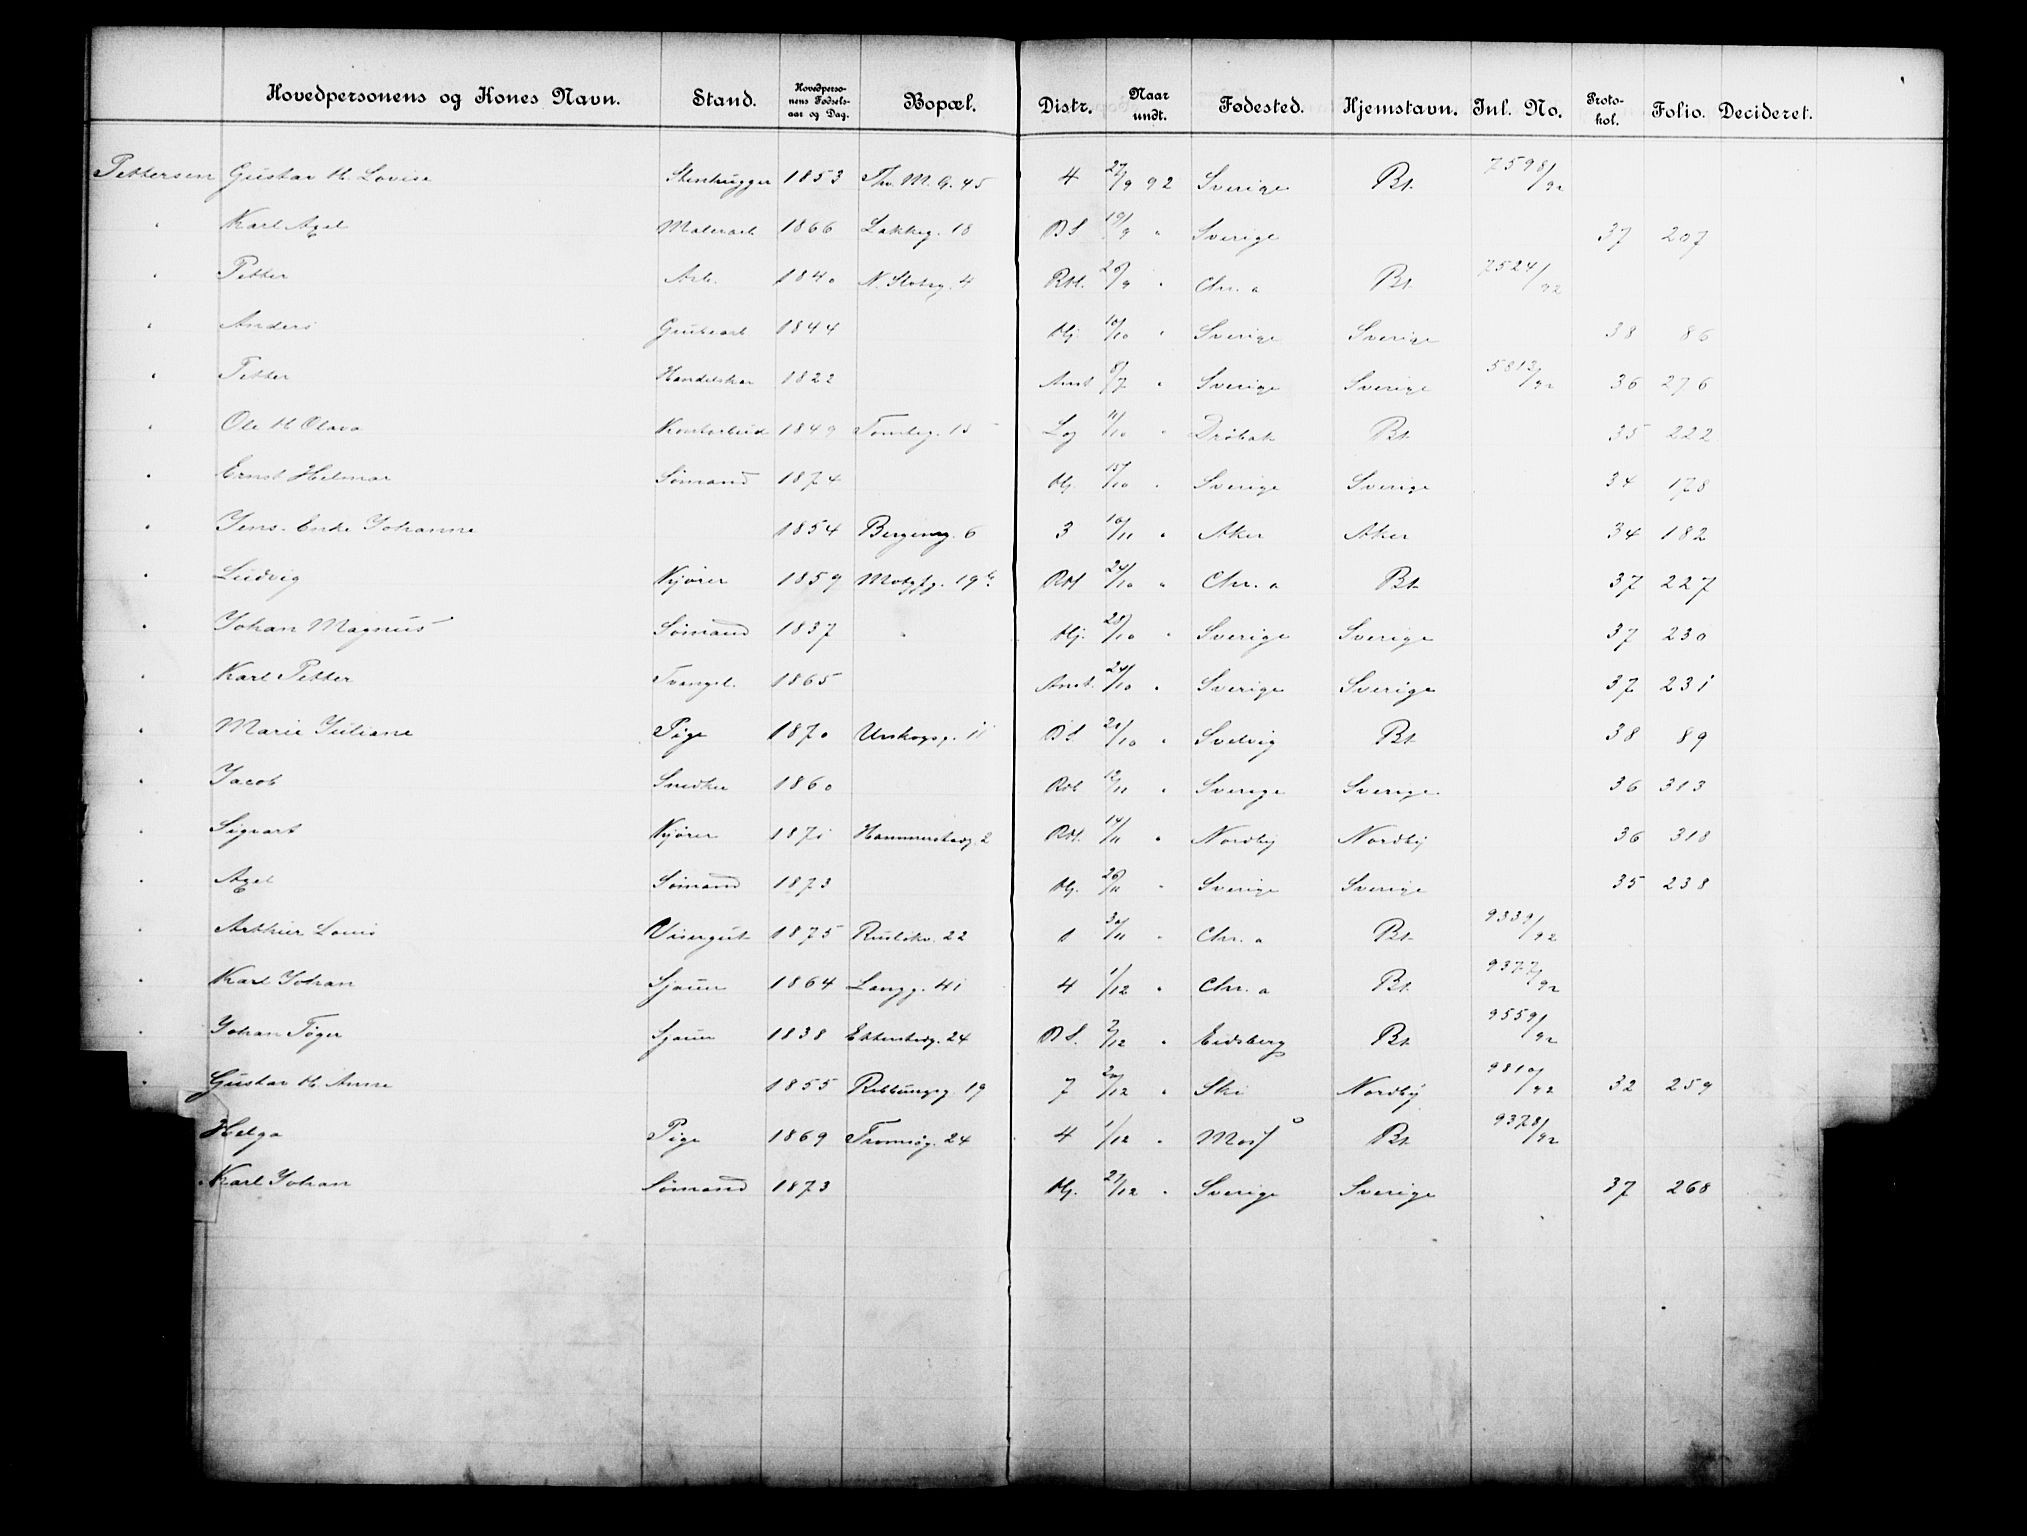 Hovedpersonens og Kones Navn. Stand. Hovedpersonens Fødselsaar og Dag. Bopæl. Distr. Naar undt. Fødested. Hjemstavn. Inl. No. Protokol. Folio. Decideret.
Pettersen Gustav H. Lovise Stenhugger 1853 Thv. M. G. 45 4 27/9 92 Sverige Bt 7598/92
" Karl Axel Malerarb 1866 Lakkeg. 18 BS 19/9 " Sverige 37 207
" Petter Arb. 1840 N. Slotsg. 4 Rbl. 20/9 " Chr.a Bt 7524/92
" Anders Grubearb 1844 Hj. 10/10 " Sverige Sverige 38 86
" Petter Handelskar 1822 Anst 8/7 " Sverige Sverige 5813/92 36 276
" Ole H Olava Kontorbud 1849 Tomteg. 15 Lg 11/10 " Drøbak Bt 35 222
" Ernst Helmar Sømand 1874 Hj. 15/10 " Sverige Sverige 34 178
" Jens. Enke Johanne 1854 Bergensg. 6 3 10/11 " Aker Aker 34 182
" Ludvig Kjører 1859 Motzfg. 19b Rbl 24/10 " Chr.a Bt 37 227
" Johan Magnus Sømand 1837 " Hj. 28/10 " Sverige Sverige 37 230
" Karl Petter Tvangsl. 1865 Anst. 24/10 " Sverige Sverige 37 231
" Marie Juliane Pige 1870 Urskogsg. 11 BS. 21/10 " Svelvig Bt 38 89
" Jacob Snedker 1860 Rbl 12/11 " Sverige Sverige 36 313
" Sigvart Kjører 1871 Hammerstadg. 2 Rbl. 14/11 " Nordby Nordby 36 318
" Axel Sømand 1873 Hj. 26/11 " Sverige Sverige 35 238
" Arthur Louis Visergut 1875 Rueløkv. 22 1 30/11 " Chr.a Bt 9339/92
" Karl Johan Sjauer 1864 Langg. 41 4 1/12 " Chr.a Bt 9377/92
" Johan Tøger Sjauer 1838 Ekkerstadg. 24 BS. 7/12 " Eidsberg Bt 9559/92
" Gustav H. Anne 1855 Rebbungsg. 19 7 20/12 " Ski Nordby 9810/92 32 259
Helga Pige 1869 Tromsøg. 24 4 1/12 " Moss Bt 9378/92
Karl Johan Sømand 1873 Hj. 27/12 " Sverige Sverige 37 268